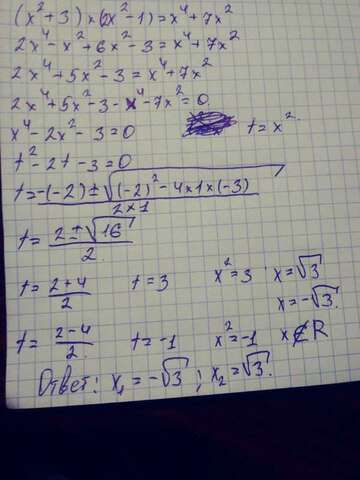 (x²+3)×(2x²-1)=x⁴+7x²
2x⁴-x²+6x²-3=x⁴+7x²
2x⁴+5x²-3=x⁴+7x²
2x⁴+5x²-3-x⁴-7x²=0
x⁴-2x²-3=0 t=x²
t²-2t-3=0
t=-(-2)±√(-2)²-4×1×(-3) / 2×1
t=2±√16 / 2
t=2+4 / 2 t=3 x²=3 x=√3
x=-√3
t=2-4 / 2 t=-1 x²=-1 x∉R
Ответ: x₁=-√3; x₂=√3.